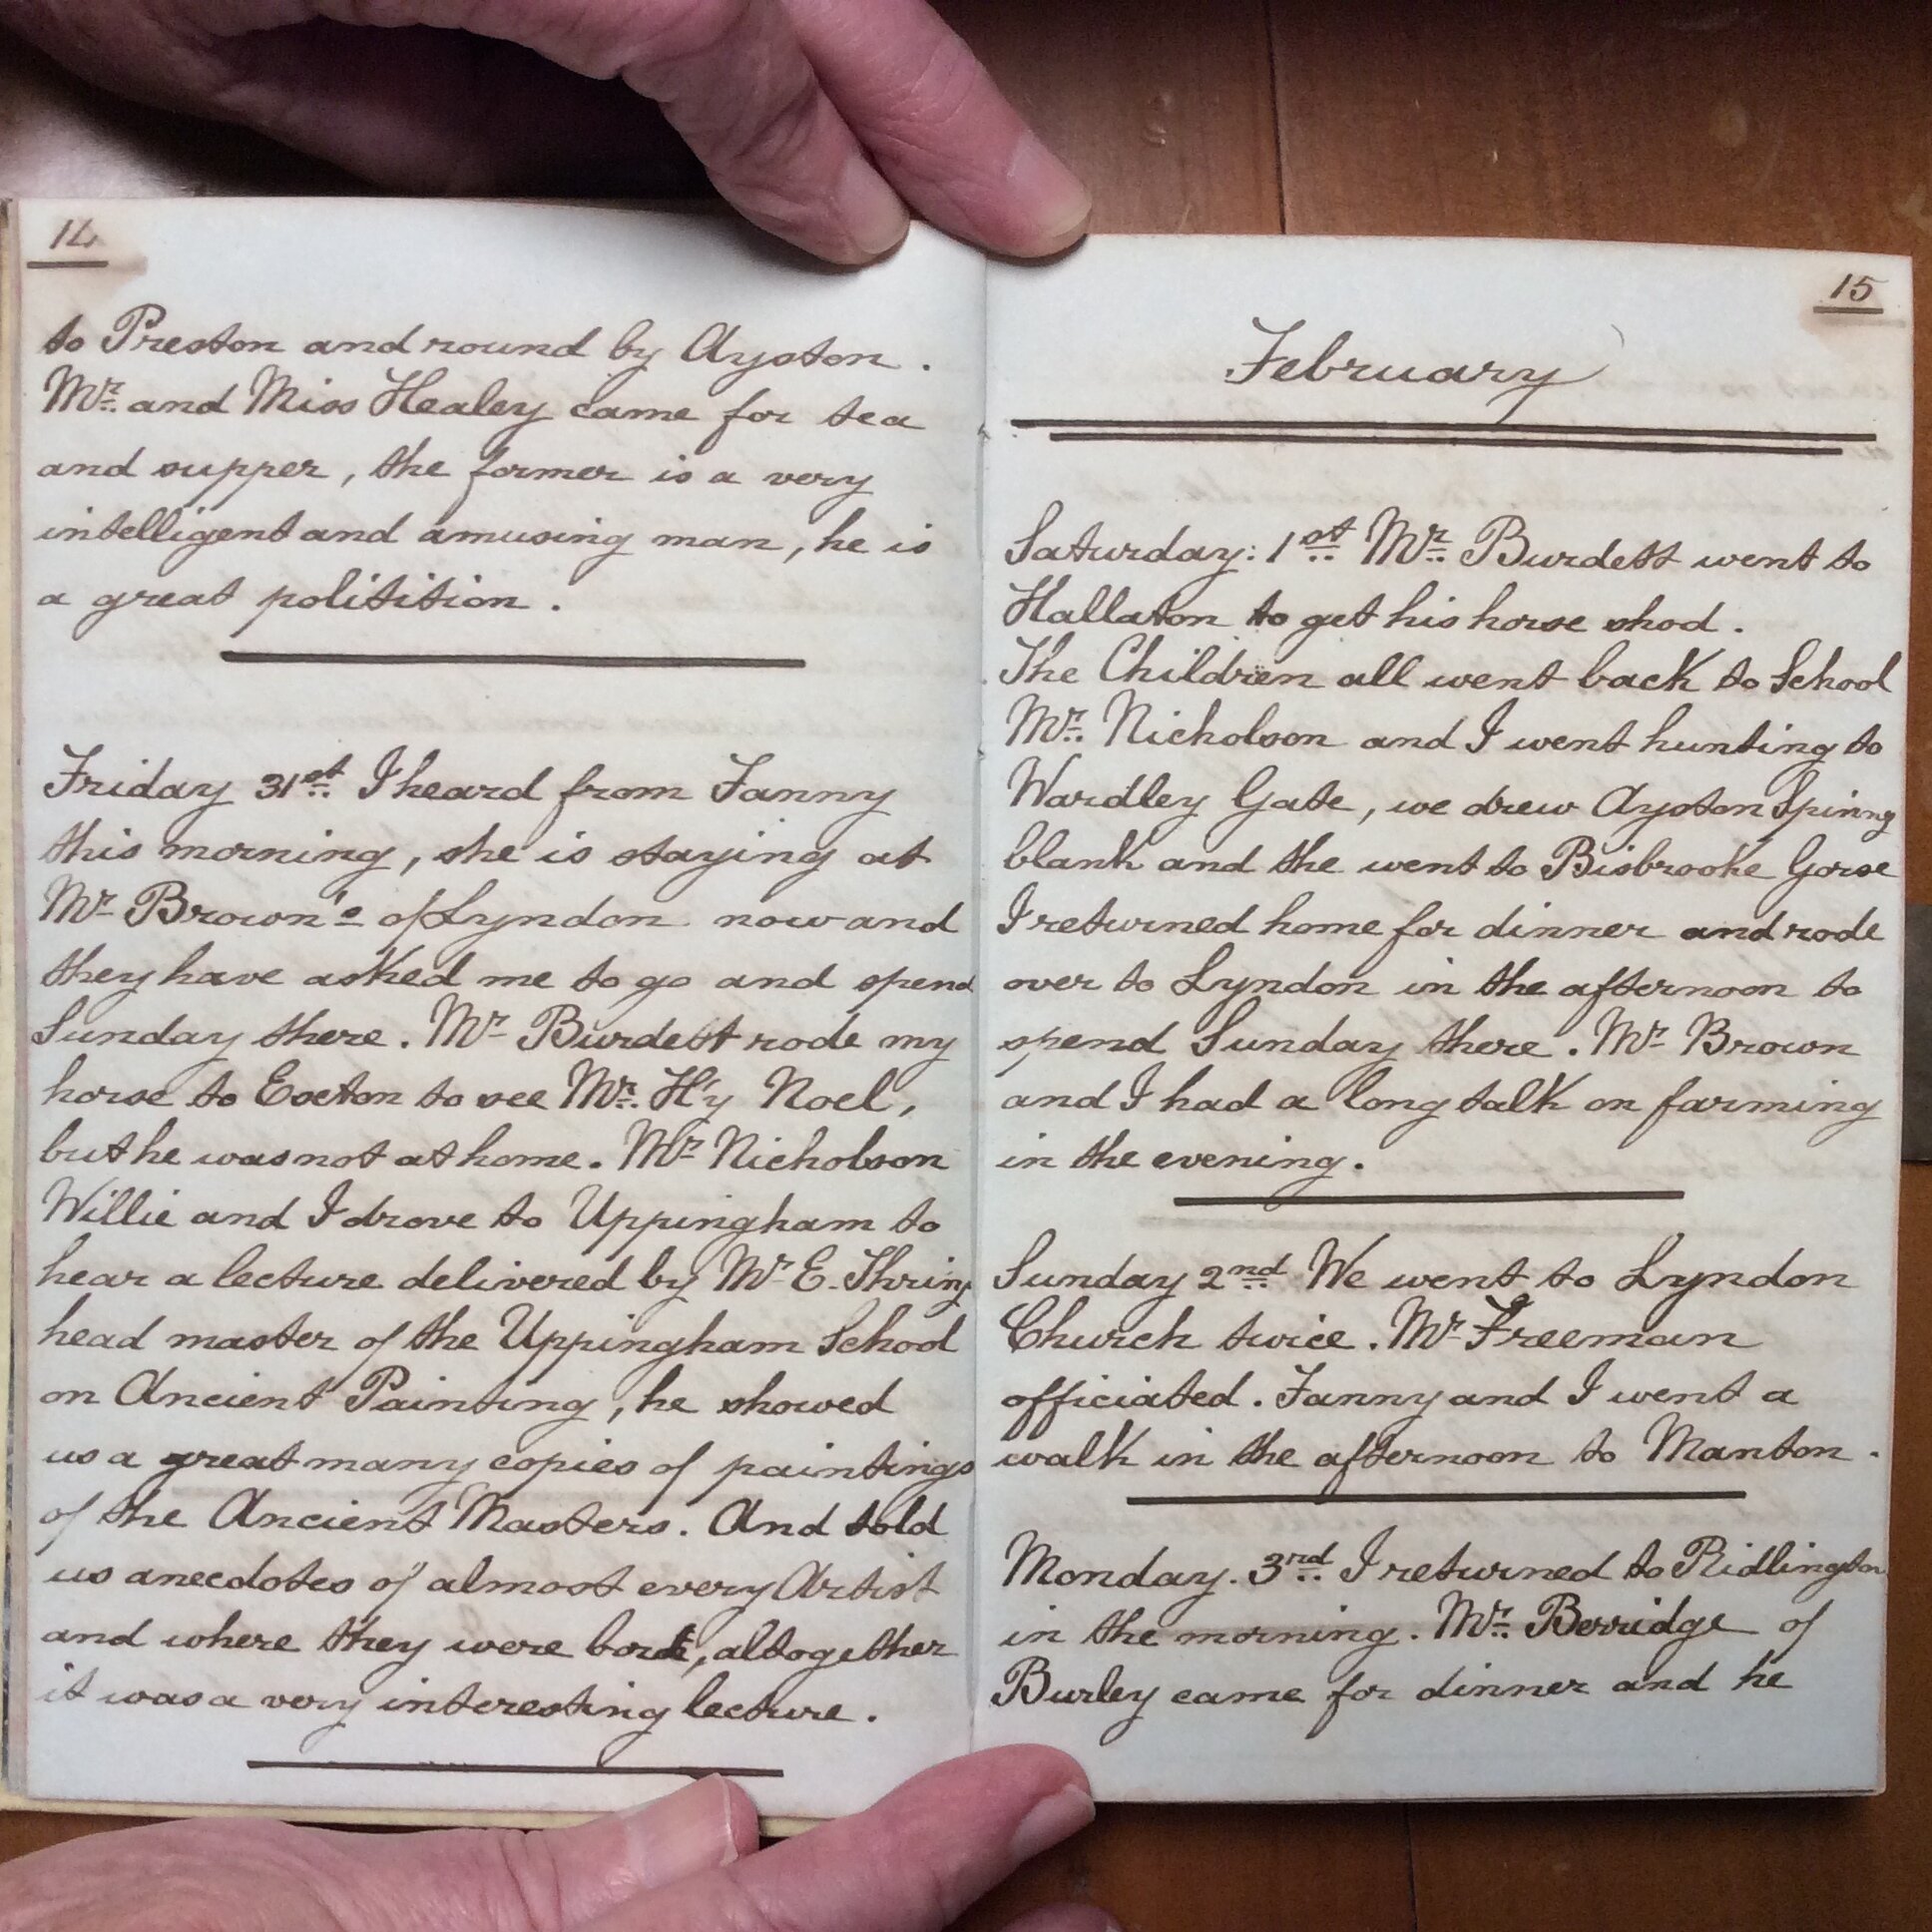 14
to Preston and round by Ayston.
Mr. and Miss Healey came for tea
and supper, the former is a very
intelligent and amusing man, he is
a great politition.
Friday 31st. I heard from Fanny
this morning, she is staying at
Mr Brown's of Lyndon now and
they have asked me to go and spend
Sunday there. Mr Burdett rode my
horse to Exeton to see Mr. H'y Noel,
but he was not at home. Mr Nicholson
Willie and I drove to Uppingham to
hear a lecture delivered by Mr E. Thring
head master of the Uppingham School
on Ancient Painting, he showed
us a great many copies of paintings
of the Ancient Masters. And told
us anecdotes of almost every Artist
and where they were, altogether
it was a very interesting lecture.
15
February
Saturday: 1st. Mr. Burdett went to
Hallaton to get his horse shod.
The Children all went back to School
Mr. Nicholson and I went hunting to
Wardley Gate, we drew Ayston Spinny
blank and the went to Bisbrooke Gorse
I returned home for dinner and rode
over to Lyndon in the afternoon to
spend Sunday there. Mr Brown
and I had a long talk on farming
in the evening.
Sunday 2nd. We went to Lyndon
Church twice. Mr Freeman
officiated. Fanny and I went a
walk in the afternoon to Manton.
Monday. 3rd. I returned to Ridlington
in the morning. Mr. Berridge of
Burley came for dinner and he